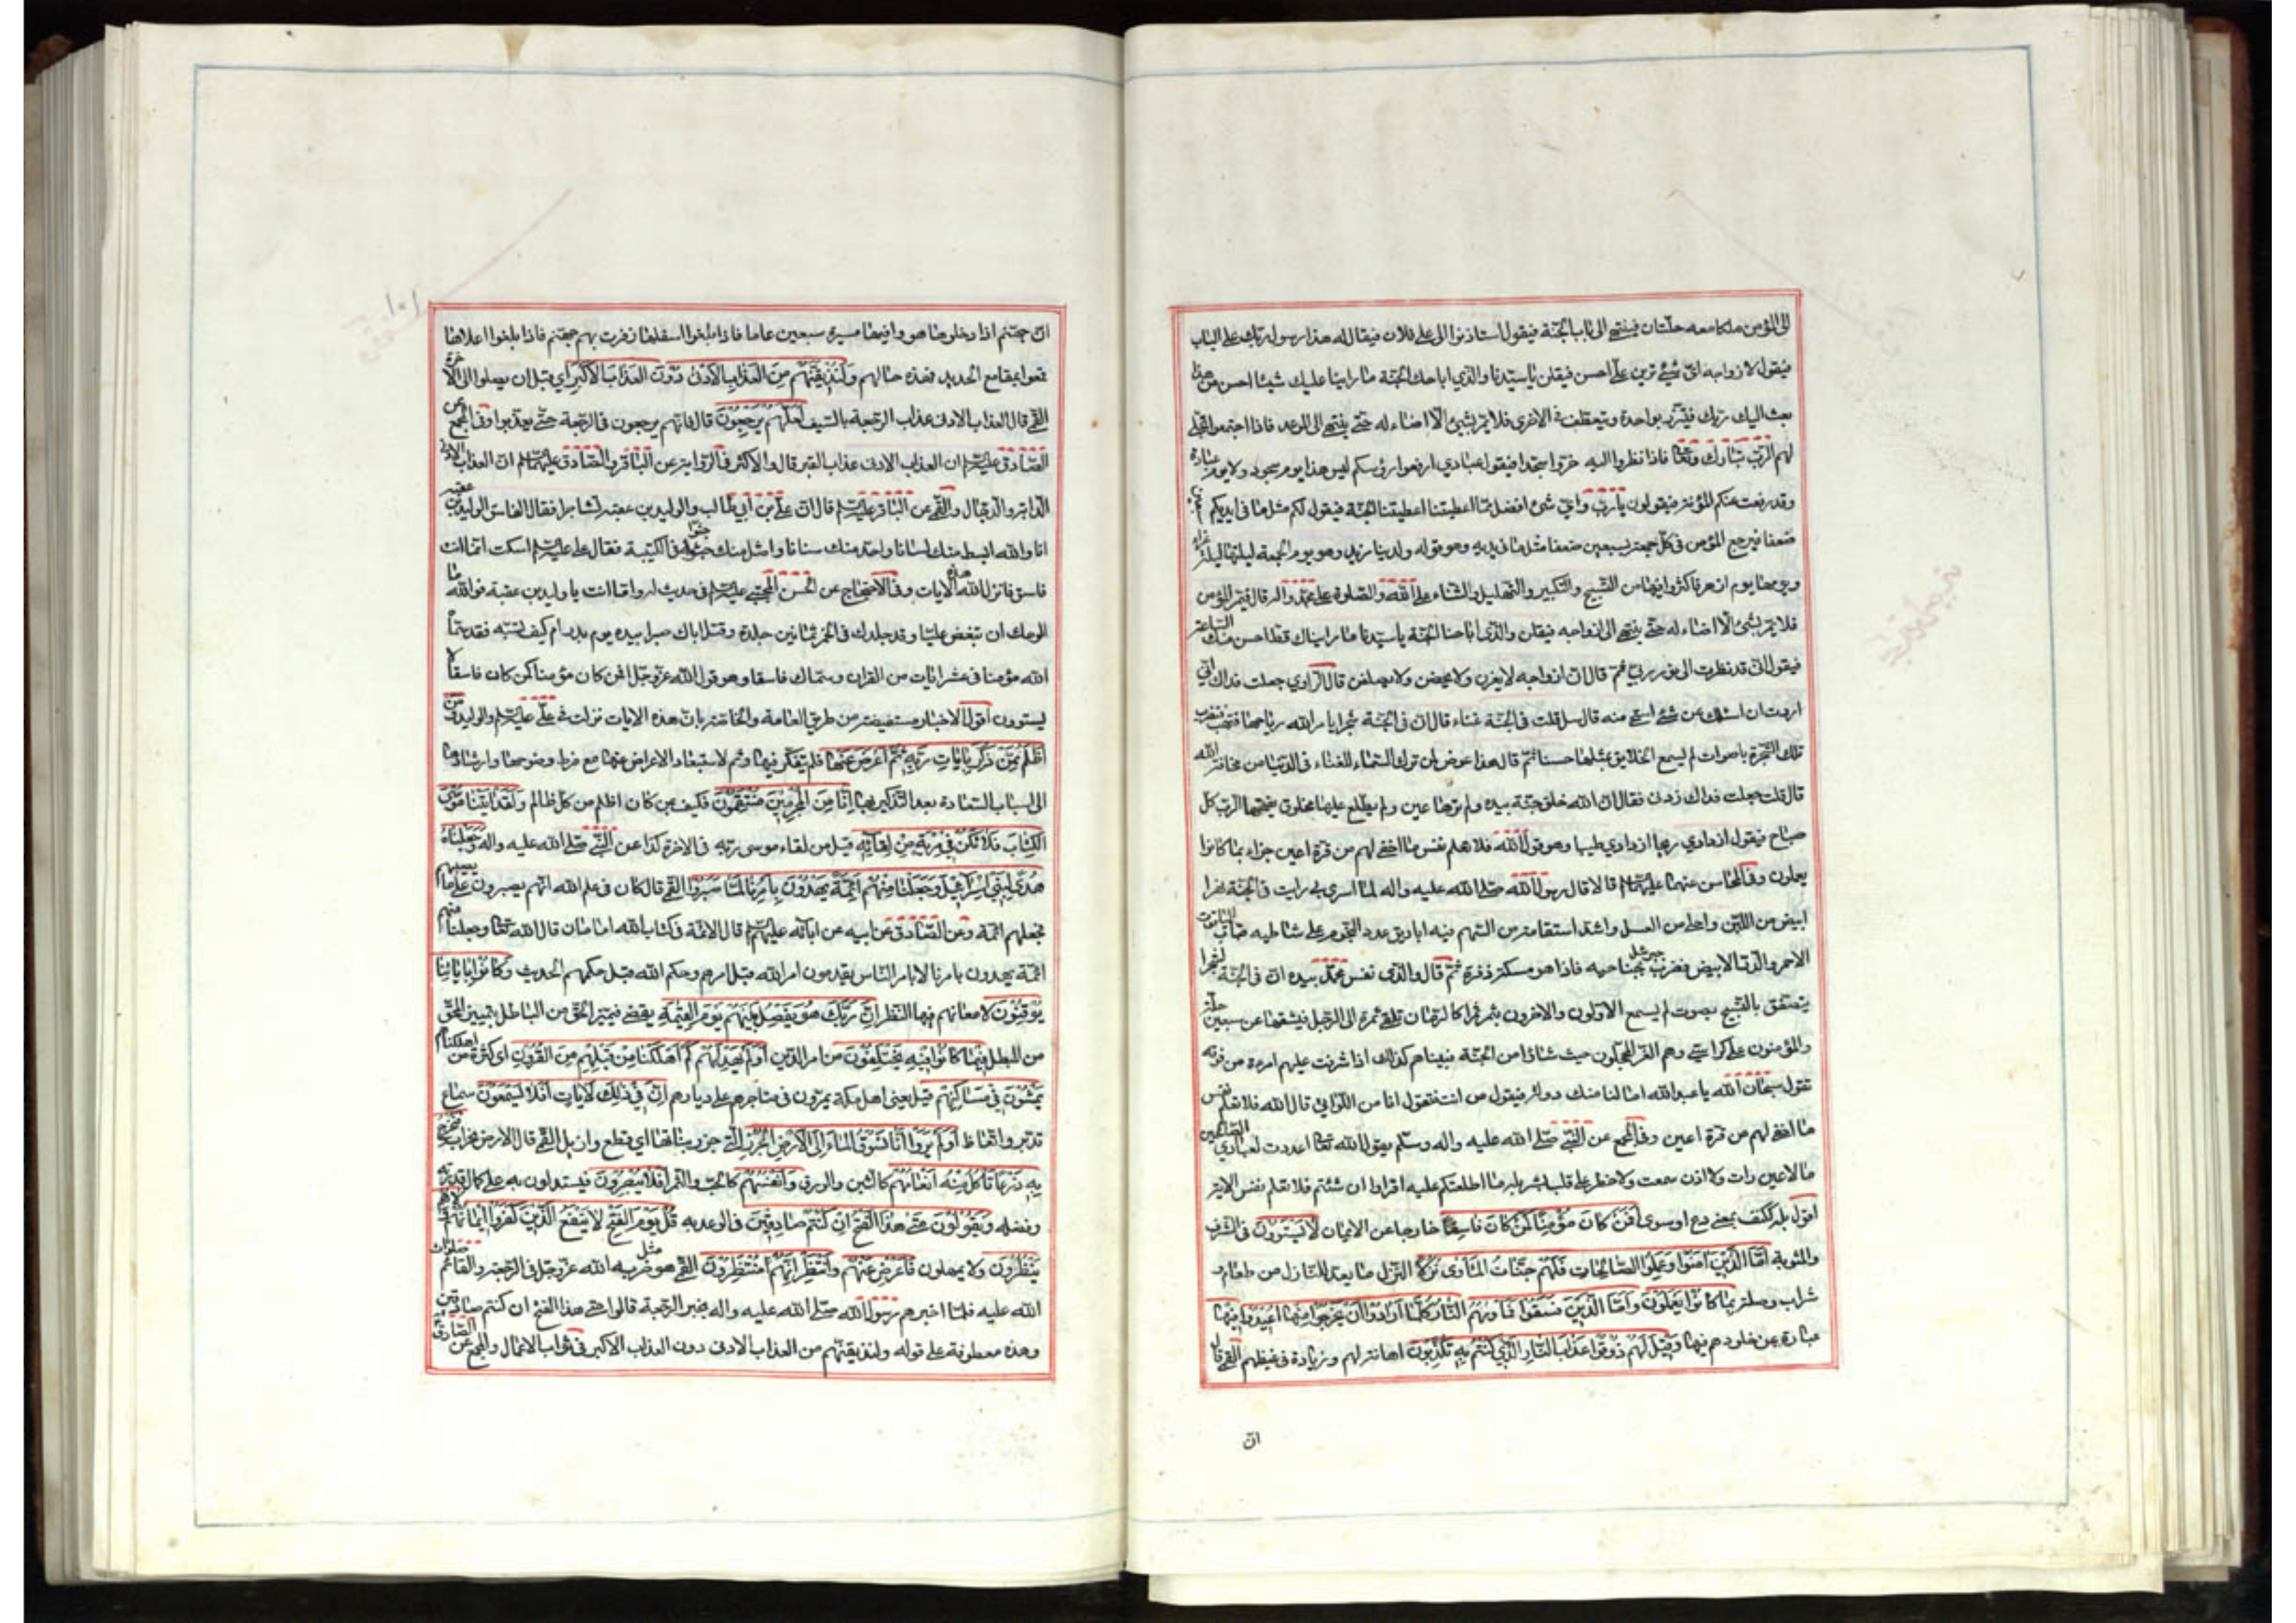 الى المؤمن ملكا معه حلتان فينتهى الى باب الجنة فيقول استاذنوا الى على فلان فيقال له هذا رسول ربك على الباب
فيقول لازواجه اى شيء ترين على احسن فيقلن يا سيدنا والذي اباحك الجنة ما راينا عليك شيئا احسن من هذا
بعث اليك ربك فيتزر بواحدة ويتعطف فى الاخرى فلا يمر بشيئ الا اضاء له حتى ينتهى الى الموعد فاذا اجتمعوا تجلى
لهم الرب تبارك وتعالى فاذا نظروا اليه خروا سجدا فيقول عبادي ارفعوا رؤسكم ليس هذا يوم سجود ولا يوم عبادة
وقد رفعت عنكم المؤنة فيقولون يا رب واي شئ افضل مما اعطيتنا اعطيتنا الجنة فيقول لكم مثل ما فى ايديكم سبعين
ضعفا فيرجع المؤمن فى كل جمعة بسبعين ضعفا مثل ما فى يديه وهو قوله ولدينا مزيد وهو يوم الجمعة ليلتها ليلة غراء
ويومها يوم ازهر فاكثروا فيها من التسبيح والتكبير والتهليل والثناء على الله والصلوة على محمد واله قال فيمر المؤمن
فلا يمر بشئ الا اضاء له حتى ينتهى الى ازواجه فيقلن والذى اباحنا الجنة يا سيدنا ما رايناك قط احسن منك الساعة
فيقول انى قد نظرت الى نور ربى ثم قال ان ازواجه لا يغرن ولا يحضن ولا يصلفن قال الراوي جعلت فداك انى
اردت ان اسئلك عن شئ استحى منه قال سل قلت فى الجنة غناء قال ان فى الجنة شجرا يامر الله رياحها فتهب فتضرب
تلك الشجرة باصوات لم يسمع الخلايق بمثلها حسنا ثم قال هذا عوض لمن ترك السماع للغناء فى الدنيا من مخافة الله
قال قلت جعلت فداك زدنى فقال ان الله خلق جنة بيده ولم ترها عين ولم يطلع عليها مخلوق يفتحها الرب كل
صباح فيقول ازدادي ريحا ازدادي طيبا وهو قول الله فلا تعلم نفس ما اخفى لهم من قرة اعين جزاء بما كانوا
يعملون وفى المحاسن عنهما عليهما السلام قالا قال رسول الله صلى الله عليه واله لما اسرى بى رايت فى الجنة نهرا
ابيض من اللبن واحلى من العسل واشد استقامة من السهم فيه اباريق عدد النجوم على شاطيه قباب الياقوت
الاحمر والدر الابيض فضرب جبرئيل بجناحيه فاذا هو مسكة ذفرة ثم قال والذى نفس محمد بيده ان فى الجنة لشجرا
يتصفق بالتسبيح بصوت لم يسمع الاولون والاخرون بثمر ثمرا كالرمان تلقى ثمرة الى الرجل فيشقها عن سبعين حلة
والمؤمنون على كراسى وهم الغر المحجلون حيث شاؤا من الجنة فبيناهم كذلك اذ اشرفت عليهم امرءة من فوقه
تقول سبحان الله يا عبد الله اما لنا منك دولة فيقول من انت فتقول انا من اللواتى قال الله فلا تعلم نفس
ما اخفى لهم من قرة اعين وفى المجمع عن النبى صلى الله عليه واله وسلم يقول الله تعالى اعددت لعبادي الصالحين
ما لا عين رات ولا اذن سمعت ولا خطر على قلب بشر بله ما اطلعتكم عليه اقراوا ان شئتم فلا تعلم نفس الاية
اقول بله ككيف بمعنى دع او سوى اَفَمَنْ كَانَ مُؤْمِنًا كَمَنْ كَانَ فَاسِقًا خارجا عن الايمان لَا يَسْتَوُونَ فى الشرف
والمثوبة اَمَّا الَّذِينَ امَنُوا وَعَمِلُوا الصَّالِحَاتِ فَلَهُمْ جَنَّاتُ الْمَأْوَى نُزُلًا النزل ما يعد للنازل من طعام و
شراب وصلة بِمَا كَانُوا يَعْمَلُونَ وَاَمَّا الَّذِينَ فَسَقُوا فَمَأْوَيهُمُ النَّارُ كُلَّمَا اَرَادُوا اَنْ يَخْرُجُوا مِنْهَا اُعِيدُوا فِيهَا
عبارة عن خلودهم فيها وَقِيلَ لَهُمْ ذُوقُوا عَذَابَ النَّارِ الَّذِي كُنْتُمْ بِهِ تُكَذِّبُونَ اهانة لهم وزيادة فى غيظهم القمى قال
ان
ان جهنم اذا دخلوها هووا فيها مسيرة سبعين عاما فاذا بلغوا اسفلها زفرت بهم جهنم فاذا بلغوا اعلاها
قمعوا بمقامع الحديد فهذه حالهم وَلَنُذِيقَنَّهُمْ مِنَ الْعَذَابِ الْاَدْنَى دُونَ الْعَذَابِ الْاَكْبَرِ اي قبل ان يصلوا الى الاخرة
القمى قال العذاب الادنى عذاب الرجعة بالسيف لَعَلَّهُمْ يَرْجِعُونَ قال فانهم يرجعون فى الرجعة حتى يعذبوا وفى المجمع عن
الصادق عليه السلام ان العذاب الادنى عذاب القبر قال والاكثر فى الرواية عن الباقر والصادق عليهما السلام ان العذاب الادنى
الدابة والدجال والقمى عن الباقر عليه السلام قال ان على بن ابي طالب والوليد بن عقبة تشاجرا فقال الفاسق الوليد بن عقبه
انا والله ابسط منك لسانا واحد منك سنانا وامثل منك جثوا فى الكتيبة فقال على عليه السلام اسكت انما انت
فاسق فانزل الله هذه الايات وفى الاحتجاج عن الحسن المجتبى عليه السلام فى حديث له واما انت يا وليد بن عقبة فوالله ما
الومك ان تبغض عليا وقد جلدك فى الخمر ثمانين جلدة وقتل اباك صبرا بيده يوم بدر ام كيف تسبه فقد سماه
الله مؤمنا فى عشر ايات من القران وسماك فاسقا وهو قول الله عز وجل افمن كان مؤمنا كمن كان فاسقا لا
يستوون اقول الاخبار مستفيضة من طريق العامة والخاصة بان هذه الايات نزلت فى على عليه السلام والوليد وَمَنْ
اَظْلَمُ مِمَّنْ ذُكِّرَ بِايَاتِ رَبِّهِ ثُمَّ اَعْرَضَ عَنْهَا فلم يتفكر فيها وثم لاستبعاد الاعراض عنها مع فرط وضوحها وارشادها
الى اسباب السعادة بعد التذكير بها اِنَّا مِنَ الْمُجْرِمِينَ مُنْتَقِمُونَ فكيف بمن كان اظلم من كل ظالم وَلَقَدْ اتَيْنَا مُوسَى
الْكِتَابَ فَلَا تَكُنْ فِي مِرْيَةٍ مِنْ لِقَائِهِ قيل من لقاء موسى ربه فى الاخرة كذا عن النبى صلى الله عليه واله وَجَعَلْنَاهُ
هُدًى لِبَنِي اِسْرَائِيلَ وَجَعَلْنَا مِنْهُمْ اَئِمَّةً يَهْدُونَ بِاَمْرِنَا لَمَّا صَبَرُوا القمى قال كان فى علم الله انهم يصبرون على ما يصيبهم
فجعلهم ائمة وعن الصادق عن ابيه عن ابائه عليهم السلام قال الائمة فى كتاب الله امامان قال الله تعالى وجعلنا منهم
ائمة يهدون بامرنا لا بامر الناس يقدمون امر الله قبل امرهم وحكم الله قبل حكمهم الحديث وَكَانُوا بِايَاتِنَا
يُوقِنُونَ لامعانهم فيها النظر اِنَّ رَبَّكَ هُوَ يَفْصِلُ بَيْنَهُمْ يَوْمَ الْقِيمَةِ يقضى فيميز الحق من الباطل بتمييز المحق
من المبطل فِيمَا كَانُوا فِيهِ يَخْتَلِفُونَ من امر الدين اَوَلَمْ يَهْدِ لَهُمْ كَمْ اَهْلَكْنَا مِنْ قَبْلِهِمْ مِنَ الْقُرُونِ اى كثرة من اهلكناهم
يَمْشُونَ فِي مَسَاكِنِهِمْ قيل يعنى اهل مكة يمرون فى متاجرهم على ديارهم اِنَّ فِي ذَلِكَ لَايَاتٍ اَفَلَا يَسْمَعُونَ سماع
تدبر واتعاظ اَوَلَمْ يَرَوْا اَنَّا نَسُوقُ الْمَاءَ اِلَى الْاَرْضِ الْجُرُزِ التى جرز نباتها اي قطع وازيل القمى قال الارض الخراب فَنُخْرِجُ
بِهِ زَرْعًا تَأْكُلُ مِنْهُ اَنْعَامُهُمْ كالتبن والورق وَاَنْفُسُهُمْ كالحب والثمر اَفَلَا يُبْصِرُونَ فيستدلون به على كمال قدرته
وفضله وَيَقُولُونَ مَتَى هَذَا الْفَتْحُ اِنْ كُنْتُمْ صَادِقِينَ فى الوعد به قُلْ يَوْمَ الْفَتْحِ لَا يَنْفَعُ الَّذِينَ كَفَرُوا اِيمَانُهُمْ وَلَا هُمْ
يُنْظَرُونَ ولا يمهلون فَاَعْرِضْ عَنْهُمْ وَانْتَظِرْ اِنَّهُمْ مُنْتَظِرُونَ القمى هو مثل ضربه الله عز وجل فى الرجعة والقائم صلوات
الله عليه فلما اخبرهم رسول الله صلى الله عليه واله بخبر الرجعة قالوا متى هذا الفتح ان كنتم صادقين
وهذه معطوفة على قوله ولنذيقنهم من العذاب الادنى دون العذاب الاكبر فى ثواب الاعمال والمجمع عن الصادق